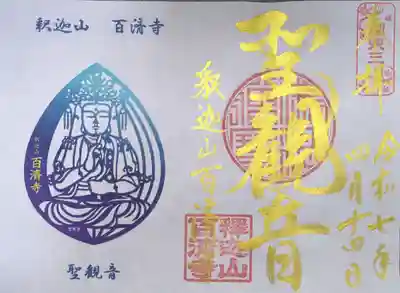 奉拝
令和七年
四月十四日
聖観音
釈迦山百済寺
釋迦山
百済寺
釈迦山 百済寺
釈迦山
百済寺
聖観音